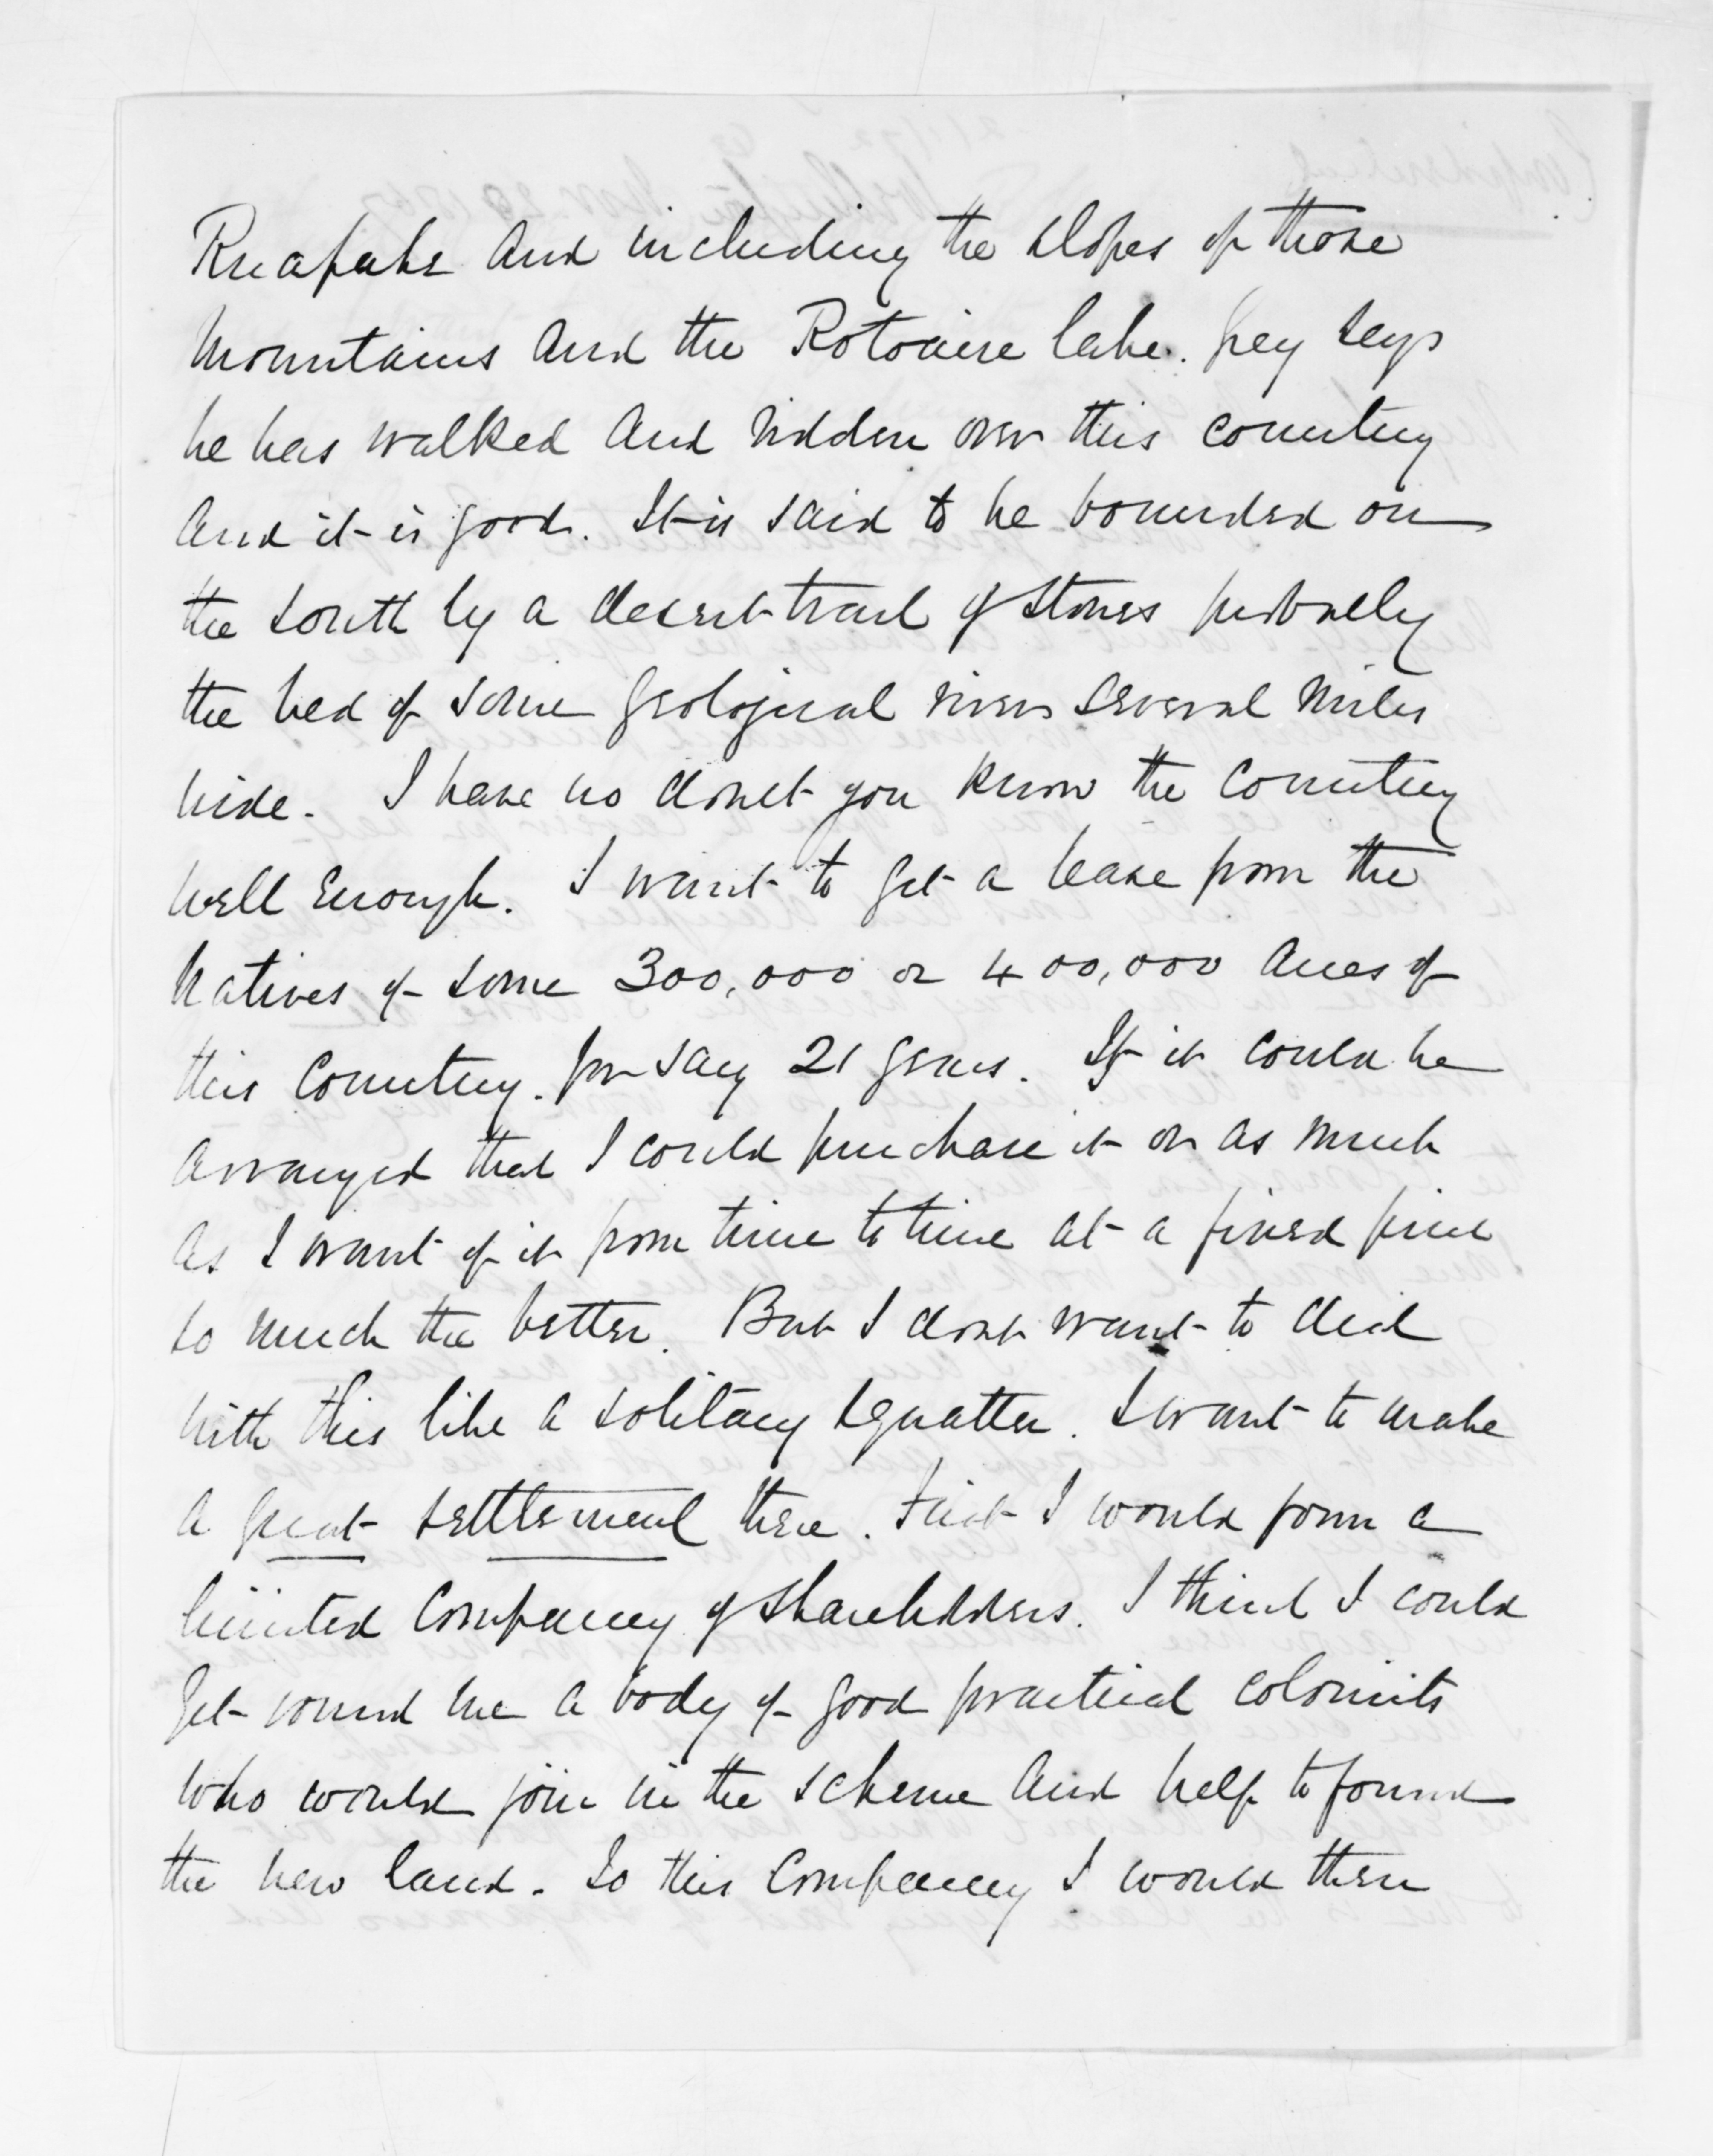 Ruapahe and including the slopes of those
mountains and the Rotoaire lake. Grey says
he has walked and ridden over this country
and it is good. It is said to be bounded on
the south by a desert track of stones probably
the bed of some geological river several miles
wide. I have no doubt you know the country
well enough. I want to get a lease from the
Natives of some 300,000 or 400,000 acres of
this country. for say 21 years. If it could be
arranged that I could purchase it or as much
as I want of it from time to time at a fixed price
so much the better. But I dont want to deal
with this like a solitary squatter. I want to make
a great settlement there. First I would form a
limited Company of Shareholders. I think I could
get round me a body of good practical colonists
who would join in the scheme and help to found
the new land. To this Company I would then